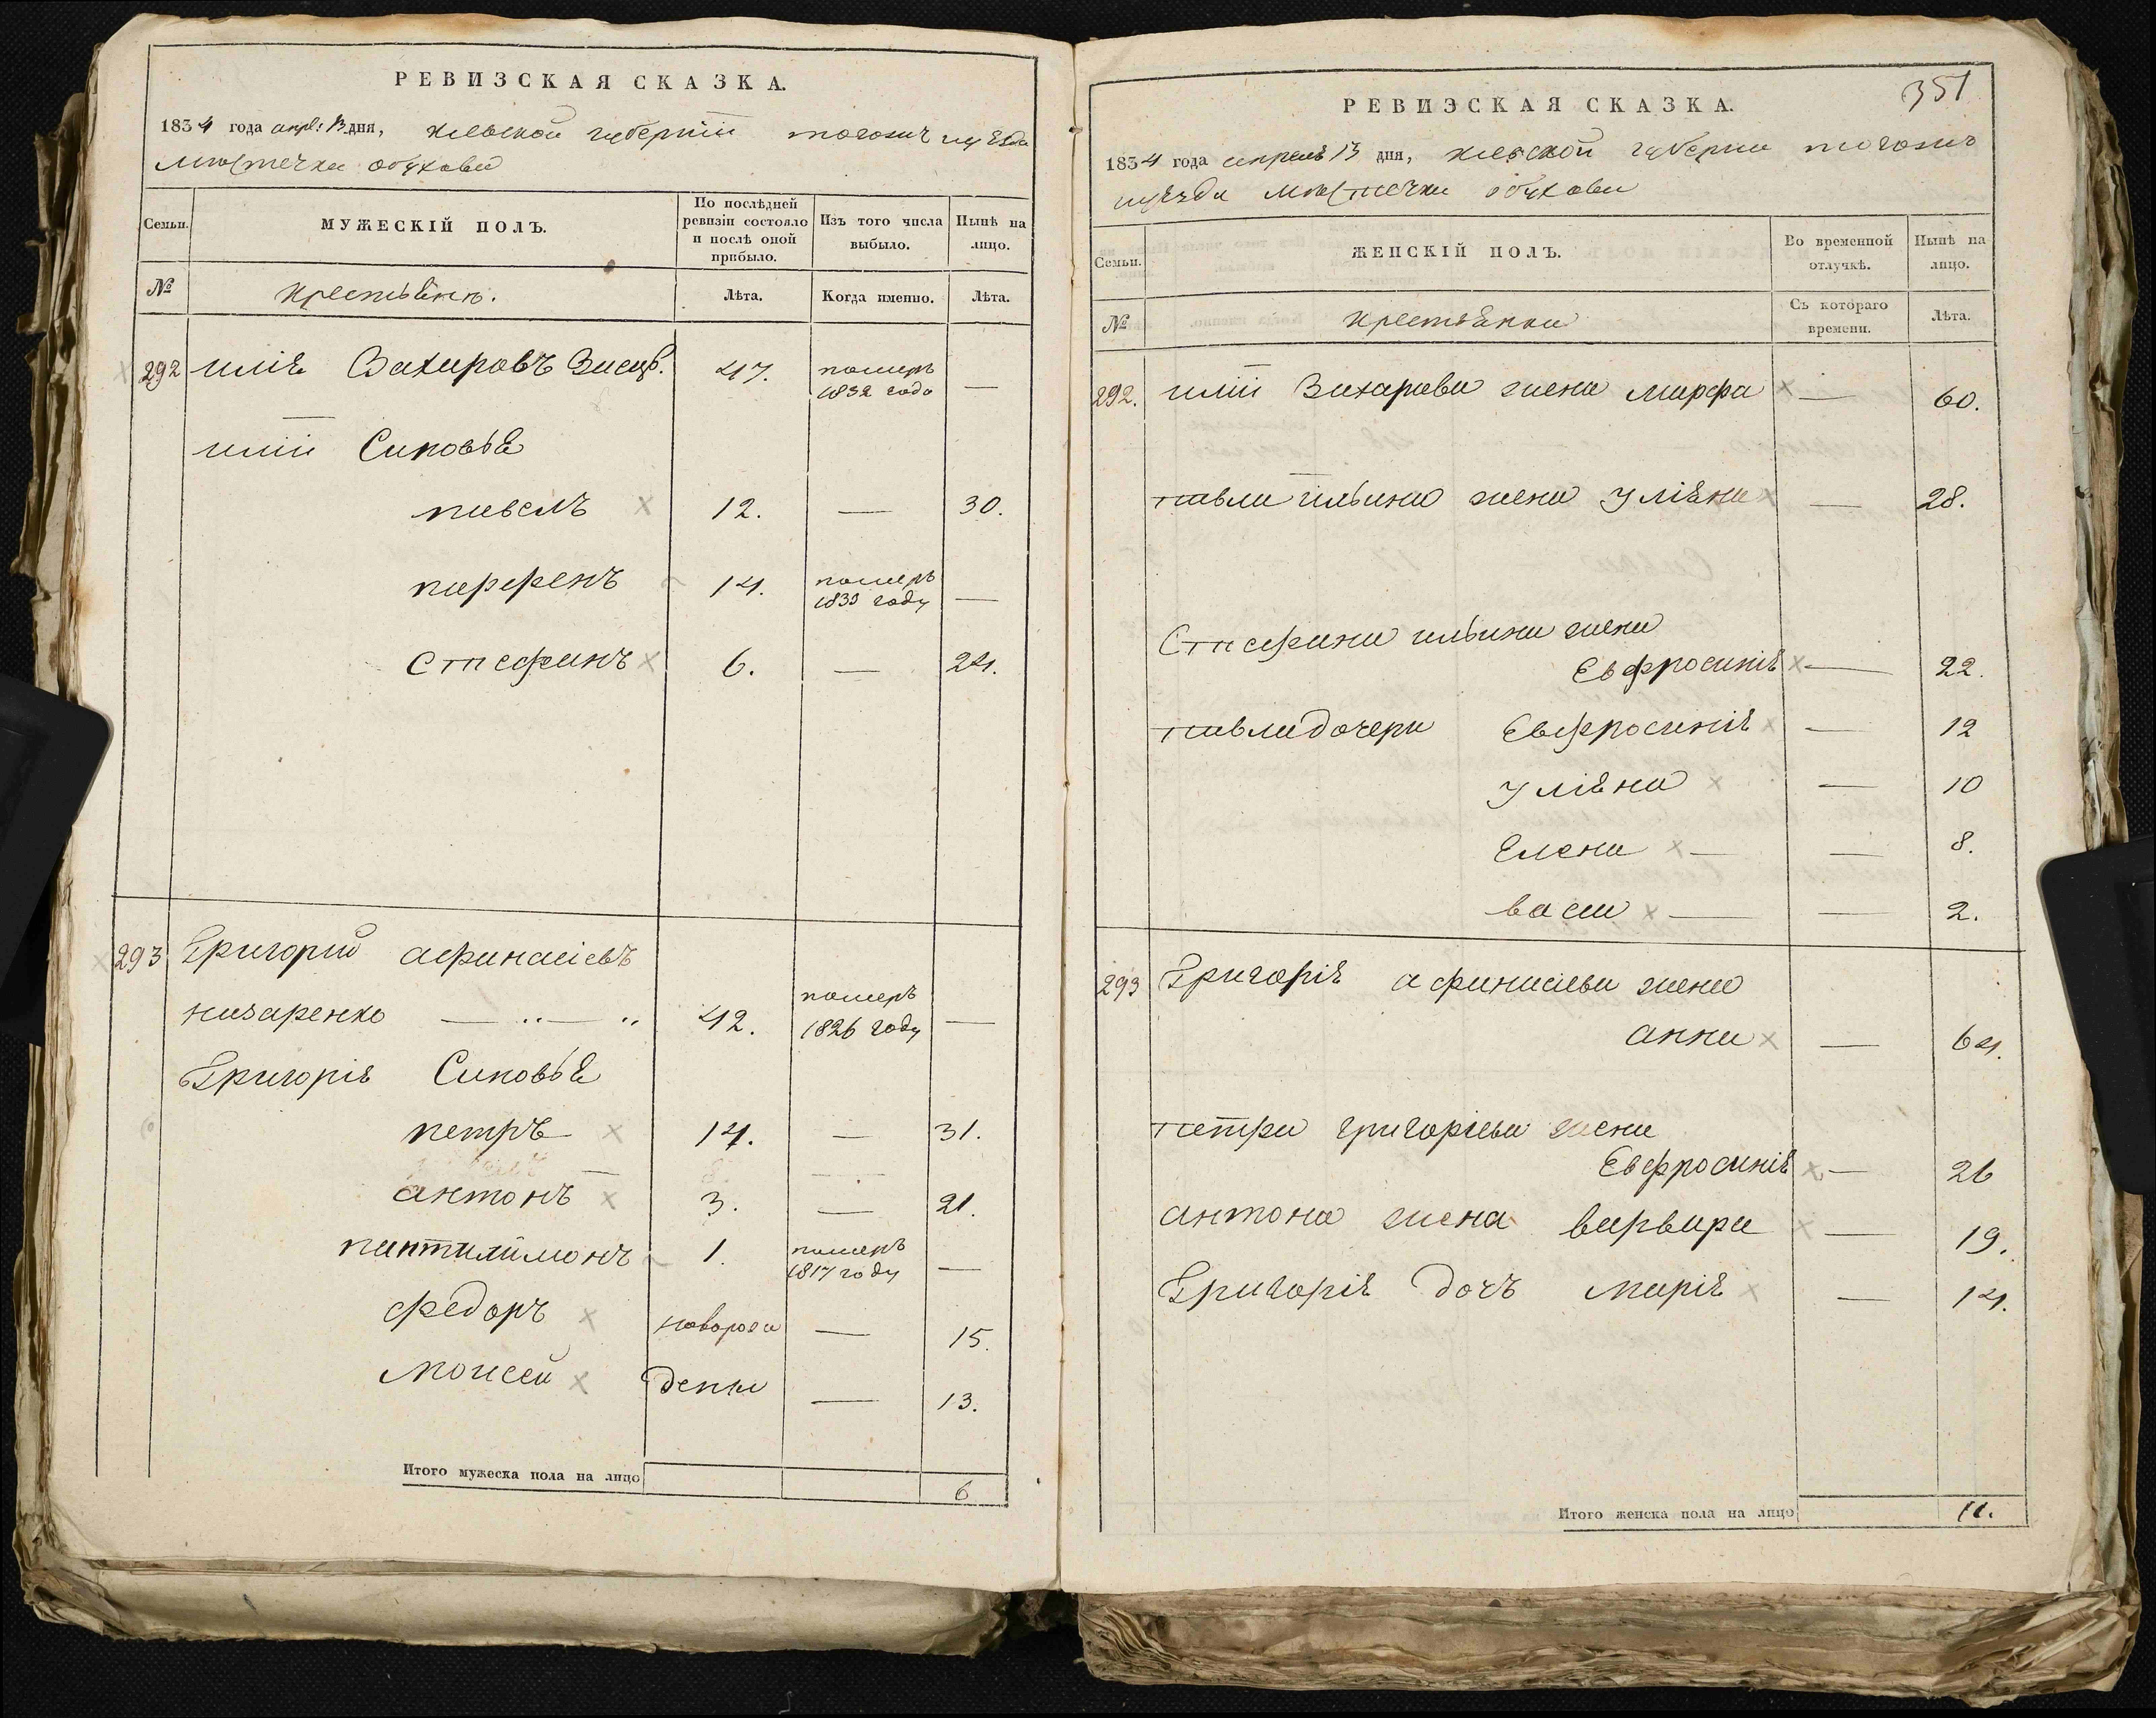 РЕВИЗСКАЯ СКАЗКА.
1834 года апрл: 13 дня, киевской губернiи тогожъ уѣзда
мѣстечка обухова
Семьи.
МУЖЕСКІЙ ПОЛЪ.
По послѣдней ревизіи состояло и послѣ оной прибыло.
Изъ того числа выбыло.
Нынѣ на лицо.
№
крестьяне.
Лѣта.
Когда именно.
Лѣта.
292 илія Захаровъ 47. померъ 1832 года —
иліи Сыновья
павелъ 12. — 30.
парфенъ 14. померъ 1833 году —
Стефанъ 6. — 24.
293 Григорій афанасіевъ
назаренко 42. померъ 1826 году —
Григорія Сыновья
петръ 14. — 31.
антонъ 3. — 21.
пантилимонъ 1. померъ 1817 году —
федоръ новорож — 15.
моисей денны — 13.
Итого мужеска пола на лицо 6
351
РЕВИЗСКАЯ СКАЗКА.
1834 года апреля 13 дня, киевской губерни тогожъ
уѣзда мѣстечка обухова
Семьи.
ЖЕНСКІЙ ПОЛЪ.
Во временной отлучкѣ.
Нынѣ на лицо.
№
крестьянки
Съ котораго времени.
Лѣта.
292. иліи Захарова жена марфа — 60.
павла ильина жена Уліяна — 28.
Стефана ильина жена
Евфросинія — 22.
павла дочери Евфросинія — 12
Уліяна — 10
Елена — — 8.
васа — — 2.
293 Григорія афанасіева жена
анна — 64.
петра григоріева жена
Евфросинія — 26
антона жена варвара — 19.
Григорія дочъ марія — 14.
Итого женска пола на лицо 11.